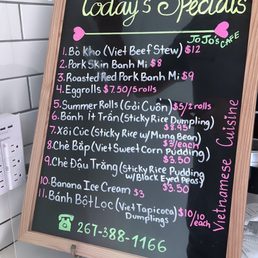 Today's Specials
JOJO'S CAFE
1. Bò Kho (Viet Beef Stew) $12
2. Pork Skin Banh Mi $8
3. Roasted Red Pork Banh Mi $9
4. Eggrolls $7.50/5 rolls
5. Summer Rolls (Gỏi Cuốn) $5/2 rolls
6. Bánh Ít Trần (Sticky Rice Dumpling)
$8.95
7. Xôi Cúc (Sticky Rice w/Mung Bean)
$3/each
8. Chè Bắp (Viet Sweet Corn Pudding)
$3.50
9. Chè Đậu Trắng (Sticky Rice Pudding
w/Black Eyed Peas)
$3.50
10. Banana Ice Cream $3
11. Bánh Bột Lọc (Viet Tapicoca
Dumplings)
$10/10
each
267-388-1166
Vietnamese Cuisine